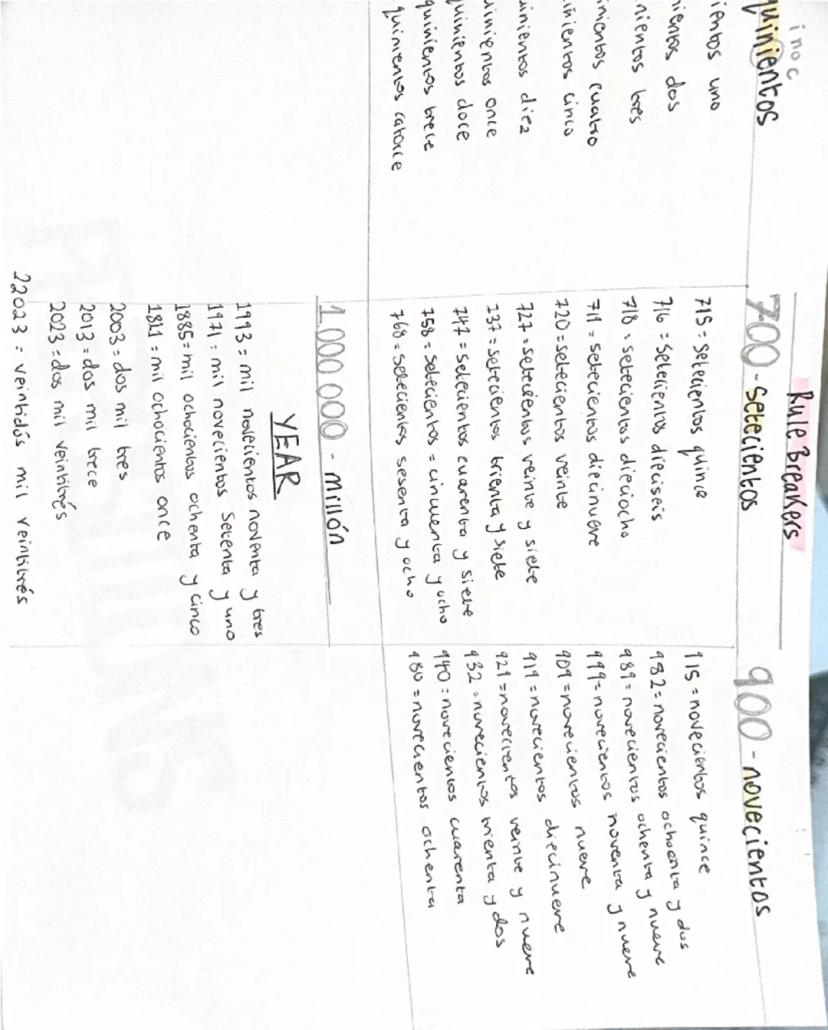 Rule Breakers
inoc
quinientos
ientos uno
ientos dos
nientos tres
nientos cuatro
inientos cinco
uinientos diez
uinientos once
quinientos doce
quinientos trece
quinientos catorce
700 - setecientos
715 = setecientos quince
716 = setecientos dieciseis
718 = setecientos dieciocho
719 = setecientos diecinueve
720 = setecientos veinte
727 = setecientos veinte y siete
737 = setecientos trienta y siete
747 = setecientos cuarenta y siete
758 = setecientos = cincuenta y ocho
768 = setecientos sesenta y ocho
900 - novecientos
915 = novecientos quince
982 = novecientos ochoenta y dos
989 = novecientos ochenta y nueve
999 = novecientos noventa y nueve
909 = novecientos nueve
919 = novecientos diecinueve
929 = novecientos veinte y nueve
932 = novecientos trienta y dos
940 = novecientos cuarenta
980 = novecientos ochenta
1.000 000 - millón
YEAR
1993 = mil novecientos noventa y tres
1971 = mil novecientos setenta y uno
1885 = mil ochocientos ochenta y cinco
1811 = mil ochocientos once
2003 = dos mil tres
2013 = dos mil trece
2023 = dos mil veintitrés
22023 = veintidós mil veintitrés